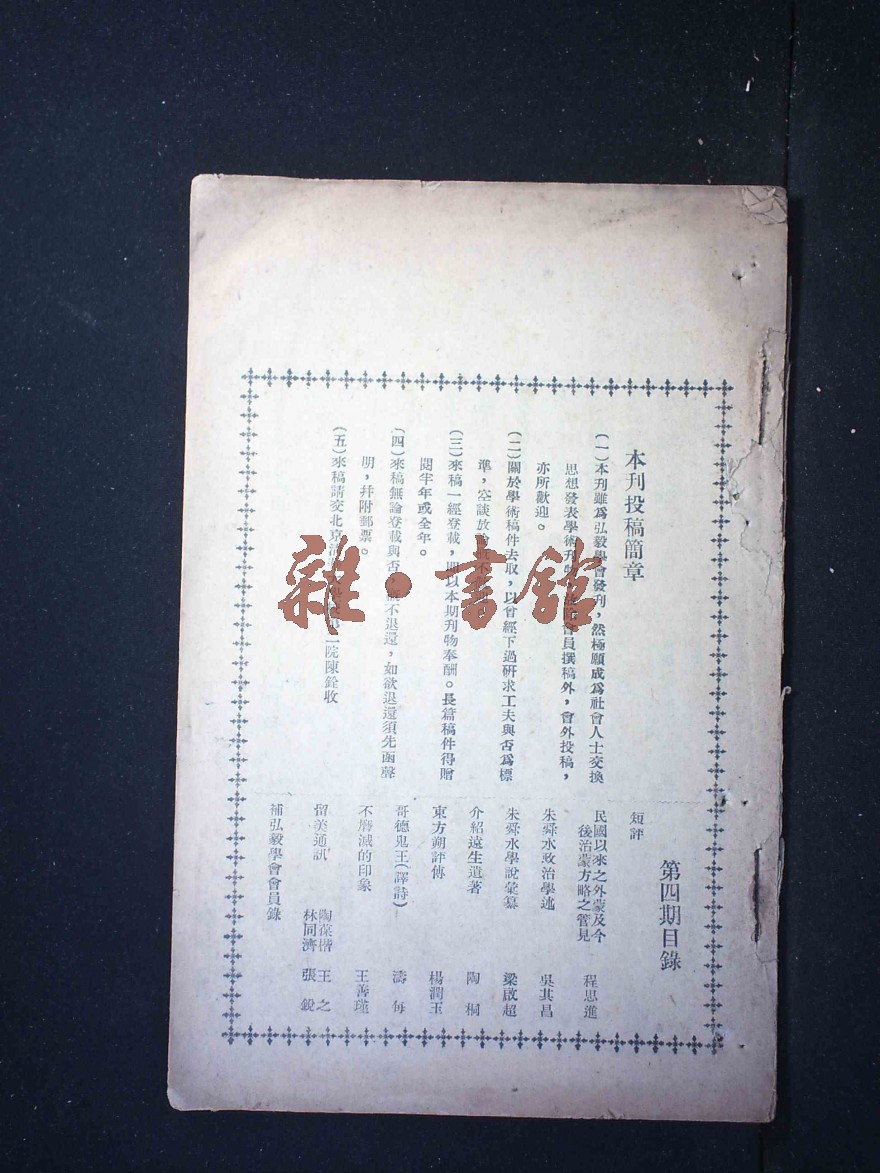 本刊投稿簡章
(一)本刊雖爲弘毅學會發刊,然極願成爲社會人士交換
思想發表學術刊物 會員撰稿外,會外投稿,
亦所歡迎。
(二)關於學術稿件去取,以曾經下過研求工夫與否爲標
準,空談放論
(三)來稿一經登載,即以本期刊物奉酬。長篇稿件得贈
閱半年或全年。
(四)來稿無論登載與否,概不退還,如欲退還須先函聲
明,幷附郵票。
(五)來稿請交北京清 院陳銓收
第四期目錄
短評
民國以來之外蒙及今後治蒙方略之管見 程思進
朱舜水政治學述 吳其昌
朱舜水學說彙纂 梁啟超
介紹遠生遺著 陶桐
東方朔評傳 楊潤玉
哥德鬼王(譯詩) 濤每
不磨滅的印象 王善瑾
留美通訊 陶葆楷 王之
林同濟 張銳
補弘毅學會會員錄
雜·書館